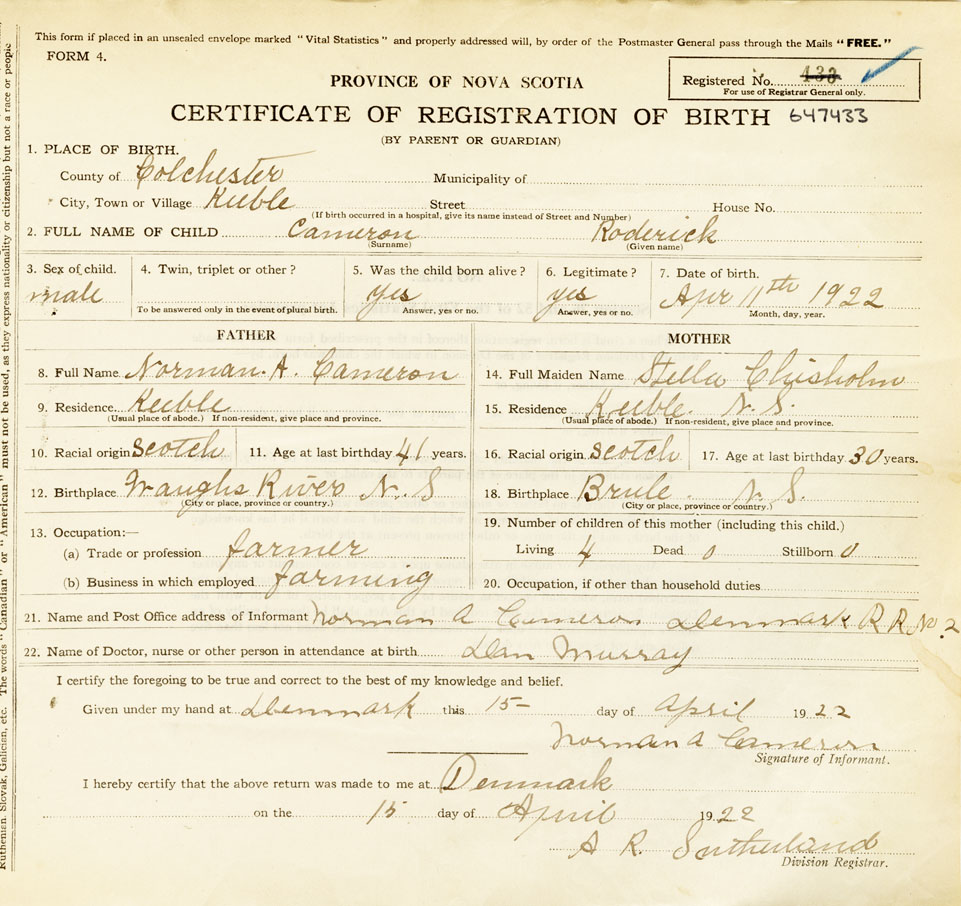 This form if placed in an unsealed envelope marked "Vital Statistics" and properly addressed will, by order of the Postmaster General pass through the Mails "FREE."
FORM 4.
PROVINCE OF NOVA SCOTIA
Registered No. 433
For use of Registrar General only.
CERTIFICATE OF REGISTRATION OF BIRTH 647433
(BY PARENT OR GUARDIAN)
1. PLACE OF BIRTH.
County of Colchester Municipality of
City, Town or Village Keeble Street House No.
(If birth occurred in a hospital, give its name instead of Street and Number)
2. FULL NAME OF CHILD Cameron Roderick
(Surname) (Given name)
3. Sex of child. 4. Twin, triplet or other? 5. Was the child born alive? 6. Legitimate? 7. Date of birth.
male yes yes Apr 11th 1922
To be answered only in the event of plural birth. Answer, yes or no. Answer, yes or no. Month, day, year.
FATHER MOTHER
8. Full Name Norman. A. Cameron 14. Full Maiden Name Stella Chisholm
9. Residence Keeble 15. Residence Keeble. N. S.
(Usual place of abode.) If non-resident, give place and province. (Usual place of abode.) If non-resident, give place and province.
10. Racial origin Scotch 11. Age at last birthday 41 years. 16. Racial origin Scotch 17. Age at last birthday 30 years.
12. Birthplace Waughs River N. S 18. Birthplace Brule. N. S.
(City or place, province or country.) (City or place, province or country.)
13. Occupation:— 19. Number of children of this mother (including this child.)
(a) Trade or profession farmer Living 4 Dead 0 Stillborn 0
(b) Business in which employed farming 20. Occupation, if other than household duties
21. Name and Post Office address of Informant Norman A Cameron Denmark R R No. 2
22. Name of Doctor, nurse or other person in attendance at birth Dan Murray
I certify the foregoing to be true and correct to the best of my knowledge and belief.
Given under my hand at Denmark this 15 day of April 1922
Norman A Cameron
Signature of Informant.
I hereby certify that the above return was made to me at Denmark
on the 15 day of April 1922
A R. Sutherland
Division Registrar.
Ruthenian, Slovak, Galician, etc. The words "Canadian" or "American" must not be used, as they express nationality or citizenship but not a race or people